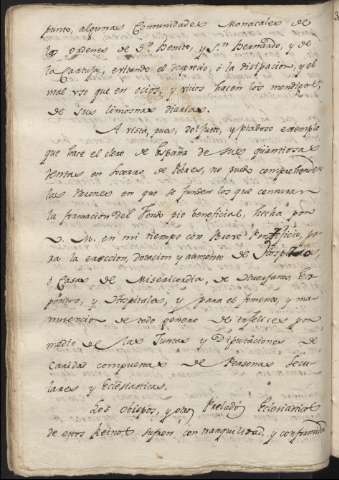 punto, algunas Comunidades Monacales de
las ordenes de Sn. Benito, y Sn. Bernardo, y de
la Cartuja, evitando el desperdicio, ó la disipacion, y el
mal uso que en ocios, y vicios hacen los mendigos,
de sus limosnas diarias.
A vista, pues, del justo, y piadoso exemplo
que hace el clero de España de sus quantiosas
rentas en socorro de Pobres, no puedo comprehender
las razones en que se fundan los que censuran
la formacion del fondo pio beneficial, hecha por
V. M. en mi tiempo con Breve Pontificio, pa
ra la ereccion, dotacion y aumento de Hospicios,
ó Casas de Misericordia, de Huerfanos Ex
positos, y Hospitales, y para el fomento, y ma
nutencion de todo genero de infelices por
medio de las Juntas y Diputaciones de
Caridad compuestas de Personas Secu
lares y Eclesiasticas.
Los obispos, y otros Prelados Eclesiasticos
de otros Reinos sufren con tranquilidad, y conformidad